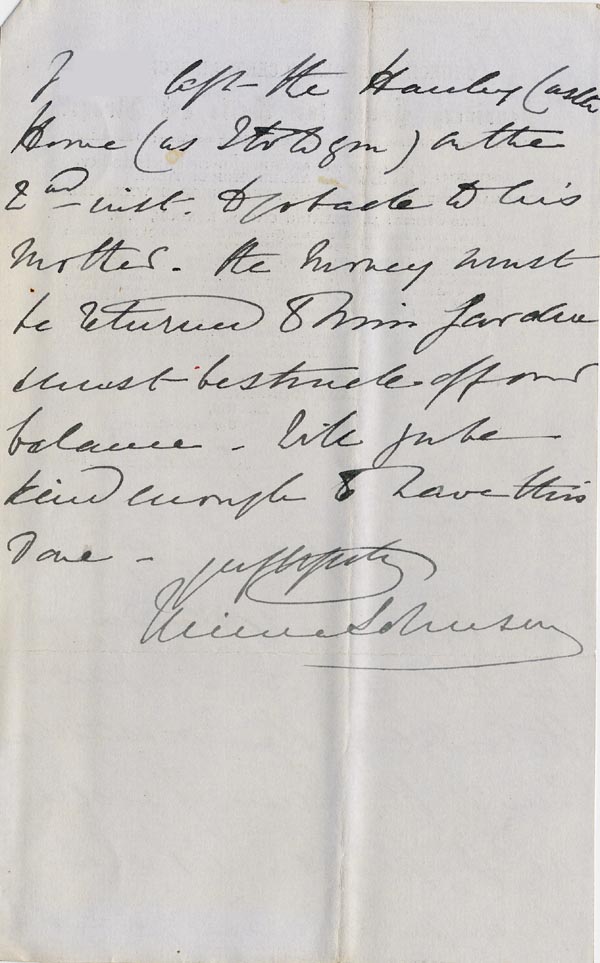 F left the Hanley Castle
Home (as I told you) on the
2nd inst. to go back to his
Mother. The money must
be returned & him Jardine
must be struck off our
balance. Will you be
kind enough to have this
Done -
yrs